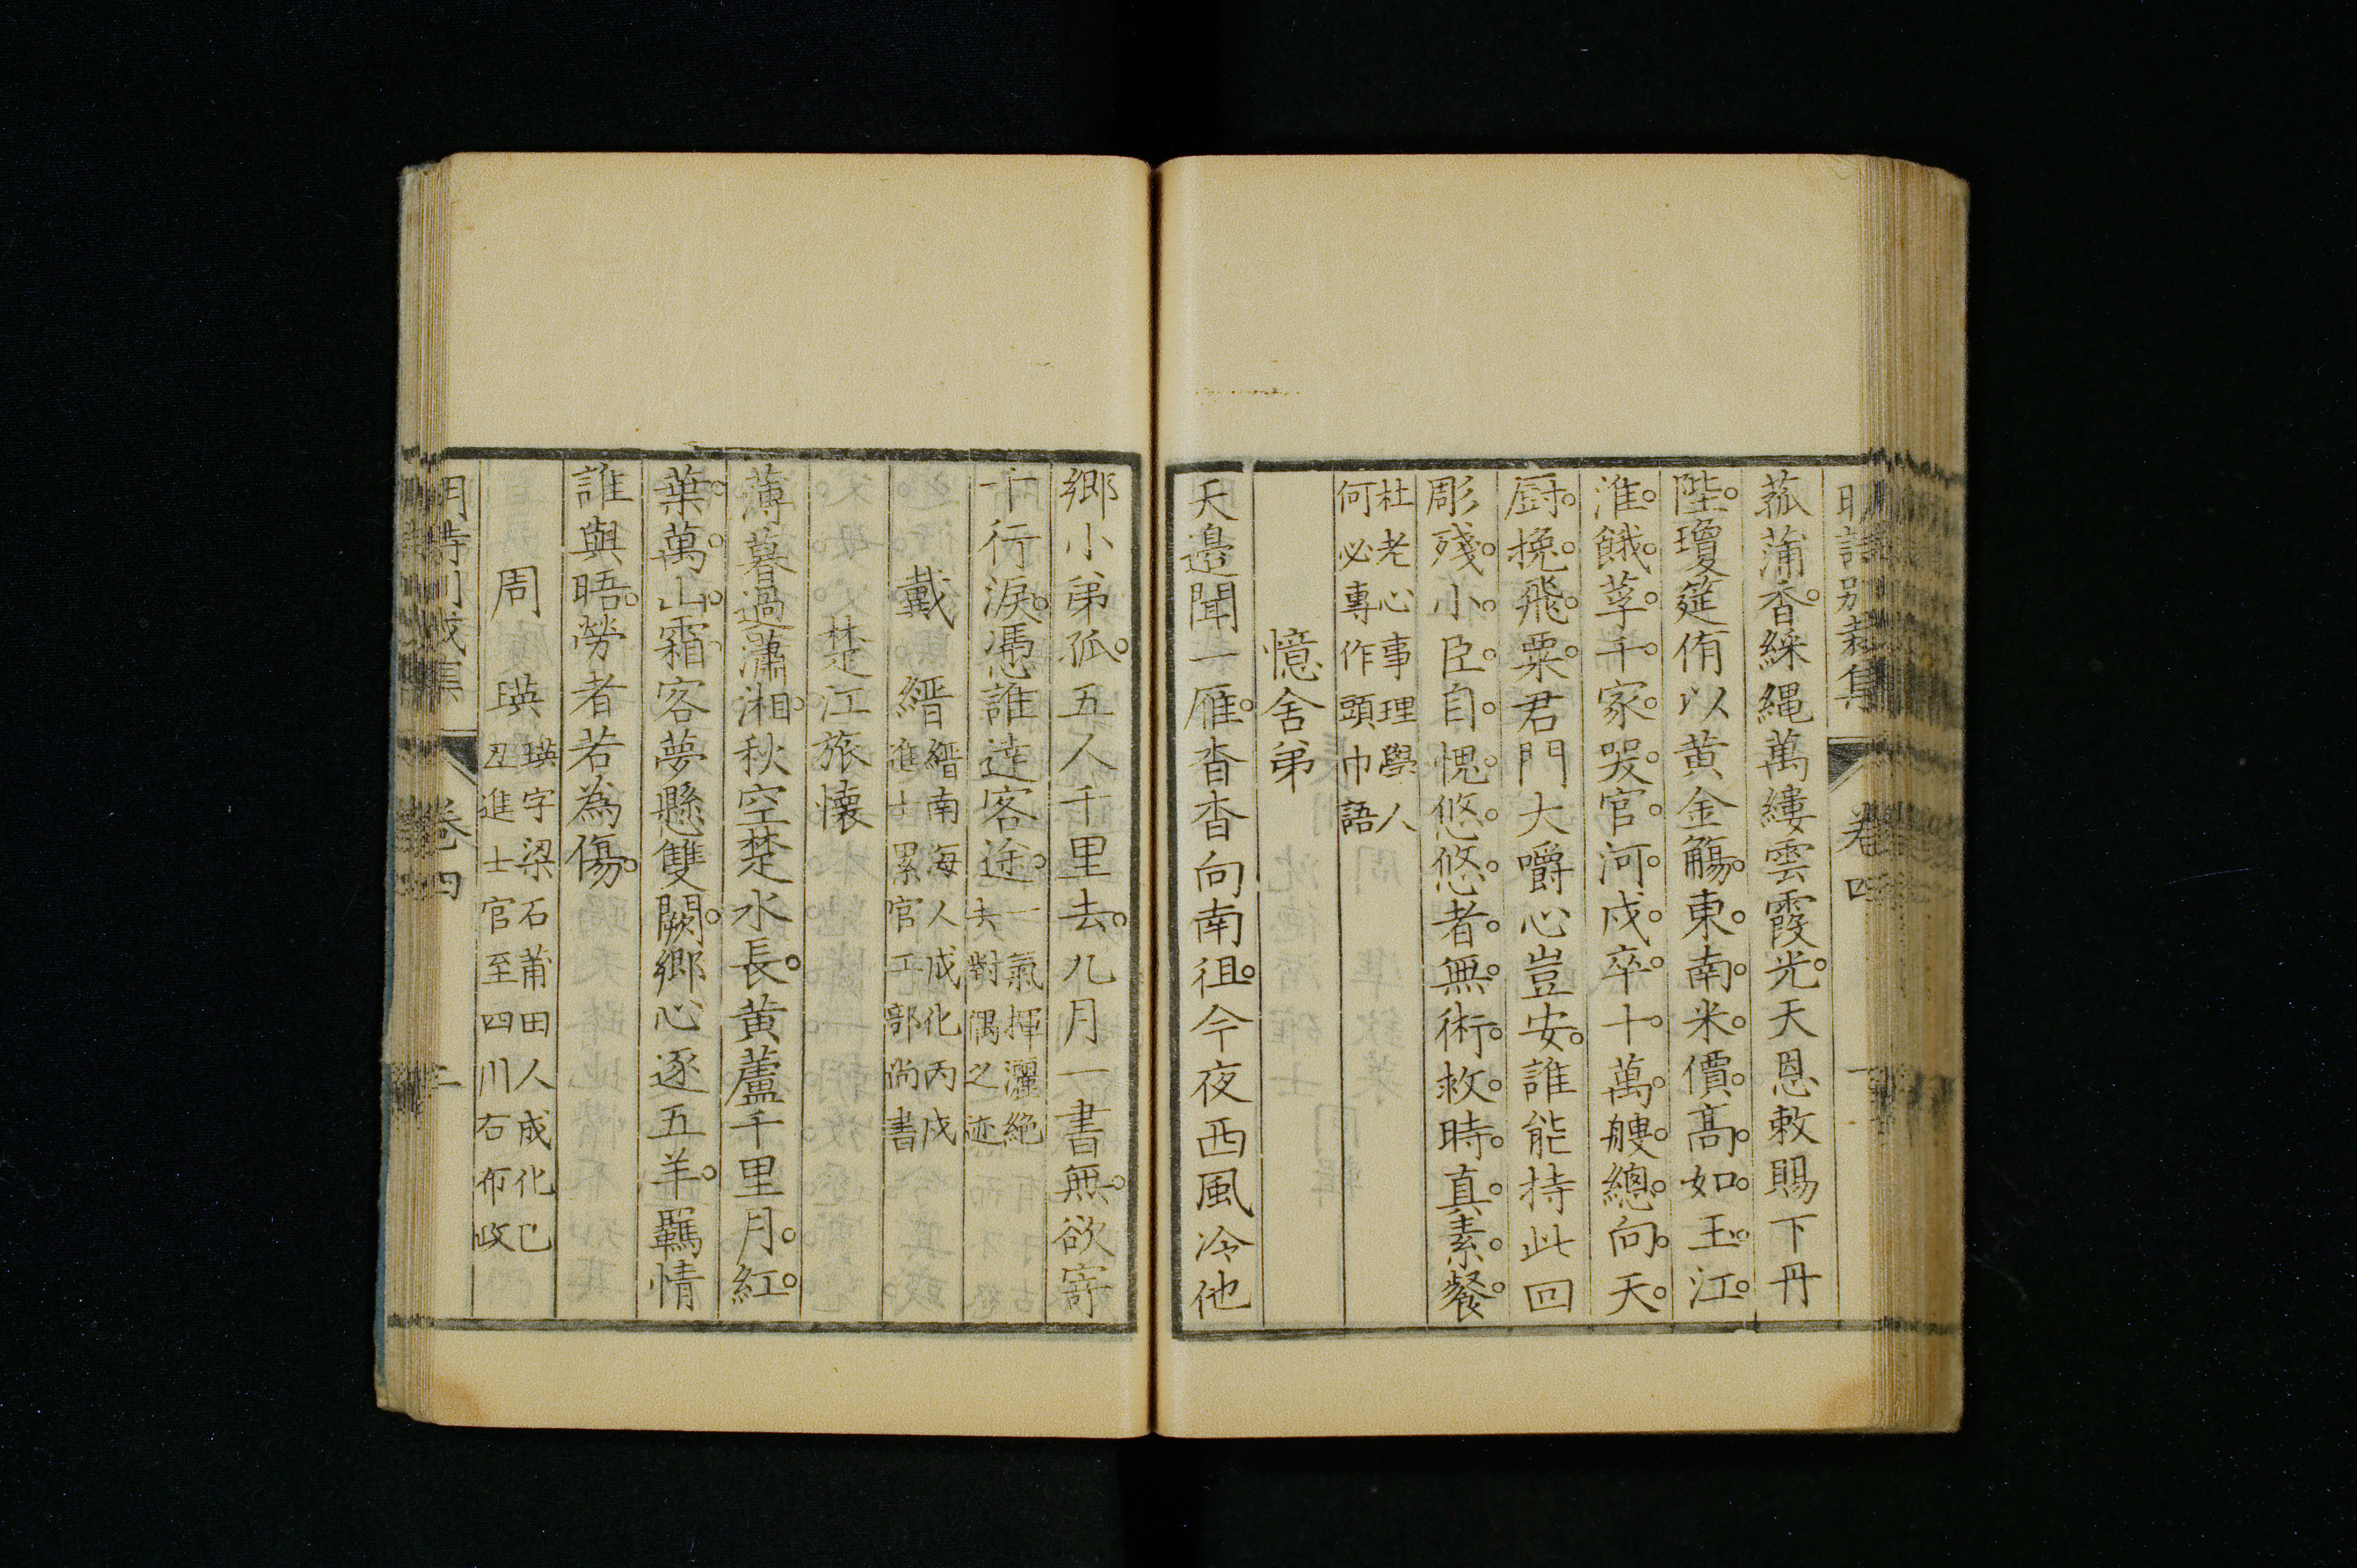 明詩別裁集 卷四 一
菰蒲香綵䋲萬縷雲霞光天恩敕賜下丹
陛瓊筵侑以黄金觴東南米價高如玉江
淮餓莩千家哭官河戍卒十萬艘總向天
厨挽飛粟君門大嚼心豈安誰能持此回
彫殘小臣自愧悠悠者無術救時真素餐
杜老心事理學人
何必專作頭巾語
憶舍弟
天邉聞一雁杳杳向南徂今夜西風冷他
鄉小弟孤五人千里去九月一書無欲寄
千行淚憑誰達客途
一氣揮灑絶
去對偶之迹
戴縉
縉南海人成化丙戌
進士累官工部尚書
楚江旅懷
薄暮過瀟湘秋空楚水長黄蘆千里月紅
葉萬山霜客夢懸雙闕鄉心逐五羊羈情
誰與晤勞者若為傷
周瑛
瑛字梁石莆田人成化己
丑進士官至四川右布政
明詩別裁集 卷四 二